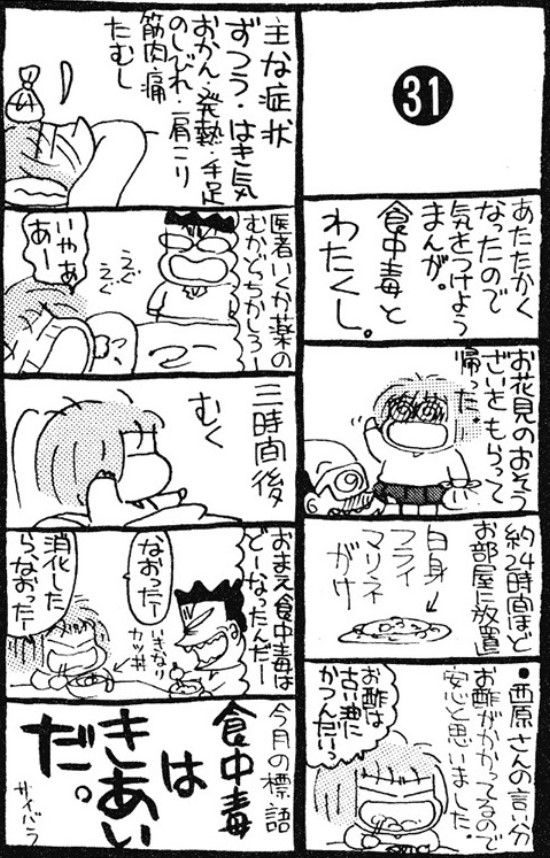 31
あたたかく
なったので
気をつけよう
まんが。
食中毒と
わたくし。
お花見のおそう
ざいをもらって
帰った。
約24時間ほど
お部屋に放置
白身
フライ
マリネ
がけ
●西原さんの言い分
お酢がかかってるので
安心と思いました。
お酢は
古い油に
かつんだいっ
主な症状
ずつう・はき気
おかん・発熱・手足
のしびれ・肩こり
筋肉痛
たむし
医者いくか薬の
むかどっちかしろー
えぐ
えぐ
いやぁ
あー
三時間後
むく
おまえ食中毒は
どーなったんだー
なおったー
いきなり
カツ丼
消化した
らなおったー
今月の標語
食中毒
は
きあい
だ。
サイバラ